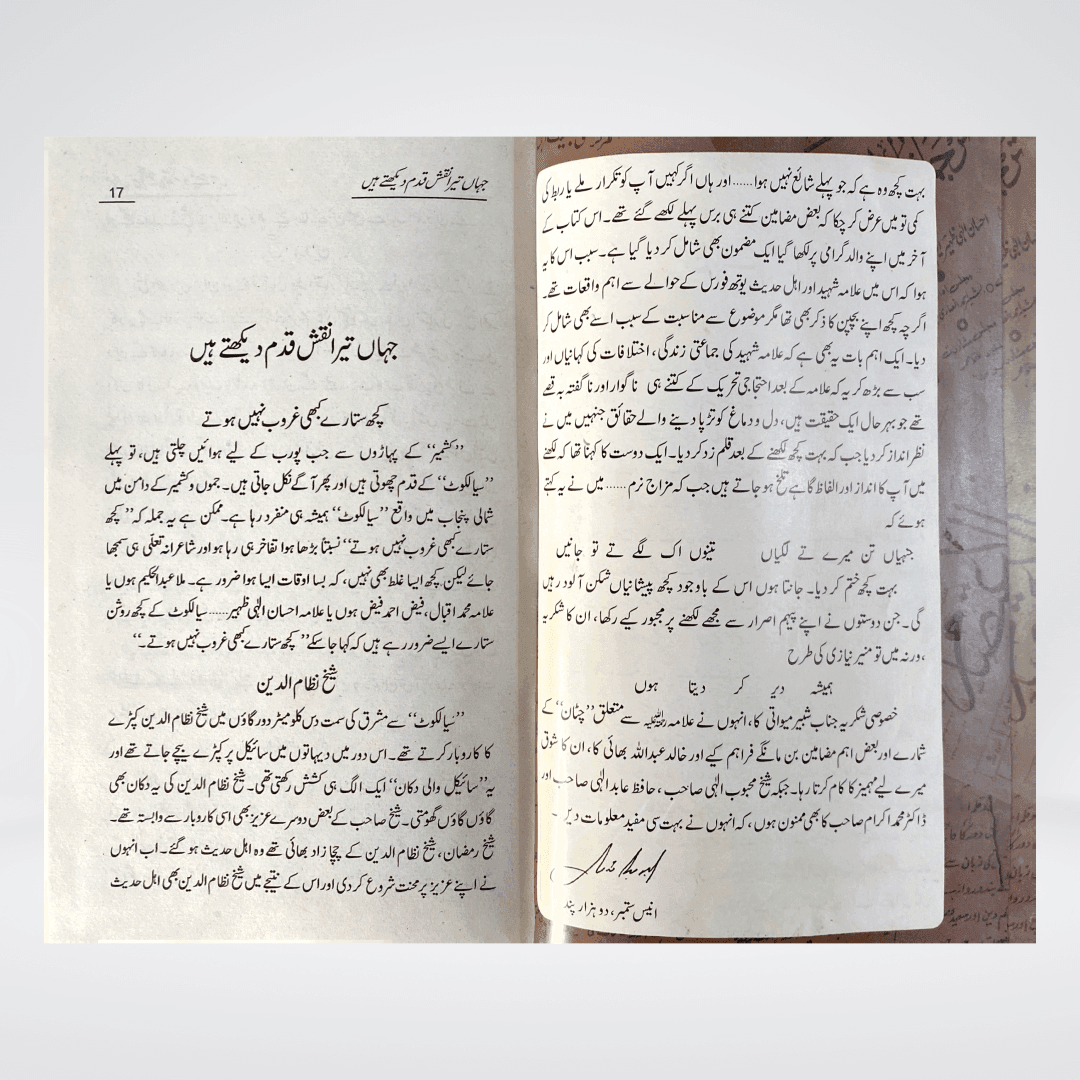 بہت کچھ وہ ہے کہ جو پہلے شائع نہیں ہوا...... اور ہاں اگر کہیں آپ کو تکرار ملے یا ربط کی
کمی تو میں عرض کر چکا کہ بعض مضامین کتنے ہی برس پہلے لکھے گئے تھے۔ اس کتاب کے
آخر میں اپنے والد گرامی پر لکھا گیا ایک مضمون بھی شامل کر دیا گیا ہے۔ سبب اس کا یہ
ہوا کہ اس میں علامہ شہید اور اہل حدیث یوتھ فورس کے حوالے سے اہم واقعات تھے۔
اگرچہ کچھ اپنے بچپن کا ذکر بھی تھا مگر موضوع سے مناسبت کے سبب اسے بھی شامل کر
دیا۔ ایک اہم بات یہ بھی ہے کہ علامہ شہید کی جماعتی زندگی، اختلافات کی کہانیاں اور
سب سے بڑھ کر یہ کہ علامہ کے بعد احتجاجی تحریک کے کتنے ہی ناگوار اور ناگفتہ بہ قصے
تھے جو بہر حال ایک حقیقت ہیں، دل و دماغ کو تڑپا دینے والے حقائق جنہیں میں نے
نظر انداز کر دیا جب کہ بہت کچھ لکھنے کے بعد قلم زد کر دیا۔ ایک دوست کا کہنا تھا کہ لکھنے
میں آپ کا انداز اور الفاظ گاہے تلخ ہو جاتے ہیں جب کہ مزاج نرم...... میں نے یہ کہتے
ہوئے کہ
جنہاں تن میرے تے لگیاں تینوں اک لگے تے تو جانیں
بہت کچھ ختم کر دیا۔ جانتا ہوں اس کے باوجود کچھ پیشانیاں شکن آلود رہیں
گی۔ جن دوستوں نے اپنے پیہم اصرار سے مجھے لکھنے پر مجبور کیے رکھا، ان کا شکریہ
،ورنہ میں تو منیر نیازی کی طرح
ہمیشہ دیر کر دیتا ہوں
خصوصی شکریہ جناب شبیر میواتی کا، انہوں نے علامہ رحمہ اللہ سے متعلق ”چٹان“ کے
شمارے اور بعض اہم مضامین بن مانگے فراہم کیے اور خالد عبداللہ بھائی کا، ان کا شوق
میرے لیے مہمیز کا کام کرتا رہا۔ جبکہ شیخ محبوب الٰہی صاحب، حافظ عابد الٰہی صاحب اور
ڈاکٹر محمد اکرام صاحب کا بھی ممنون ہوں، کہ انہوں نے بہت سی مفید معلومات دیں۔
انیس ستمبر، دو ہزار پند
جہاں تیرا نقش قدم دیکھتے ہیں
17
جہاں تیرا نقش قدم دیکھتے ہیں
کچھ ستارے کبھی غروب نہیں ہوتے
”کشمیر“ کے پہاڑوں سے جب پورب کے لیے ہوائیں چلتی ہیں، تو پہلے
”سیالکوٹ“ کے قدم چھوتی ہیں اور پھر آگے نکل جاتی ہیں۔ جموں و کشمیر کے دامن میں
شمالی پنجاب میں واقع ”سیالکوٹ“ ہمیشہ ہی منفرد رہا ہے۔ ممکن ہے یہ جملہ کہ ”کچھ
ستارے کبھی غروب نہیں ہوتے“ نسبتاً بڑھا ہوا تفاخر ہی رہا ہو اور شاعرانہ تعلّی ہی سمجھا
جائے لیکن کچھ ایسا غلط بھی نہیں، کہ بسا اوقات ایسا ہوا ضرور ہے۔ ملا عبدالحکیم ہوں یا
علامہ محمد اقبال، فیض احمد فیض ہوں یا علامہ احسان الٰہی ظہیر...... سیالکوٹ کے کچھ روشن
ستارے ایسے ضرور رہے ہیں کہ کہا جا سکے ”کچھ ستارے کبھی غروب نہیں ہوتے۔“
شیخ نظام الدین
”سیالکوٹ“ سے مشرق کی سمت دس کلومیٹر دور گاؤں میں شیخ نظام الدین کپڑے
کا کاروبار کرتے تھے۔ اس دور میں دیہاتوں میں سائیکل پر کپڑے بیچے جاتے تھے اور
یہ ”سائیکل والی دکان“ ایک الگ ہی کشش رکھتی تھی۔ شیخ نظام الدین کی یہ دکان بھی
گاؤں گاؤں گھومتی۔ شیخ صاحب کے بعض دوسرے عزیز بھی اسی کاروبار سے وابستہ تھے۔
شیخ رمضان، شیخ نظام الدین کے چچا زاد بھائی تھے وہ اہل حدیث ہو گئے۔ اب انہوں
نے اپنے عزیز پر محنت شروع کر دی اور اس کے نتیجے میں شیخ نظام الدین بھی اہل حدیث